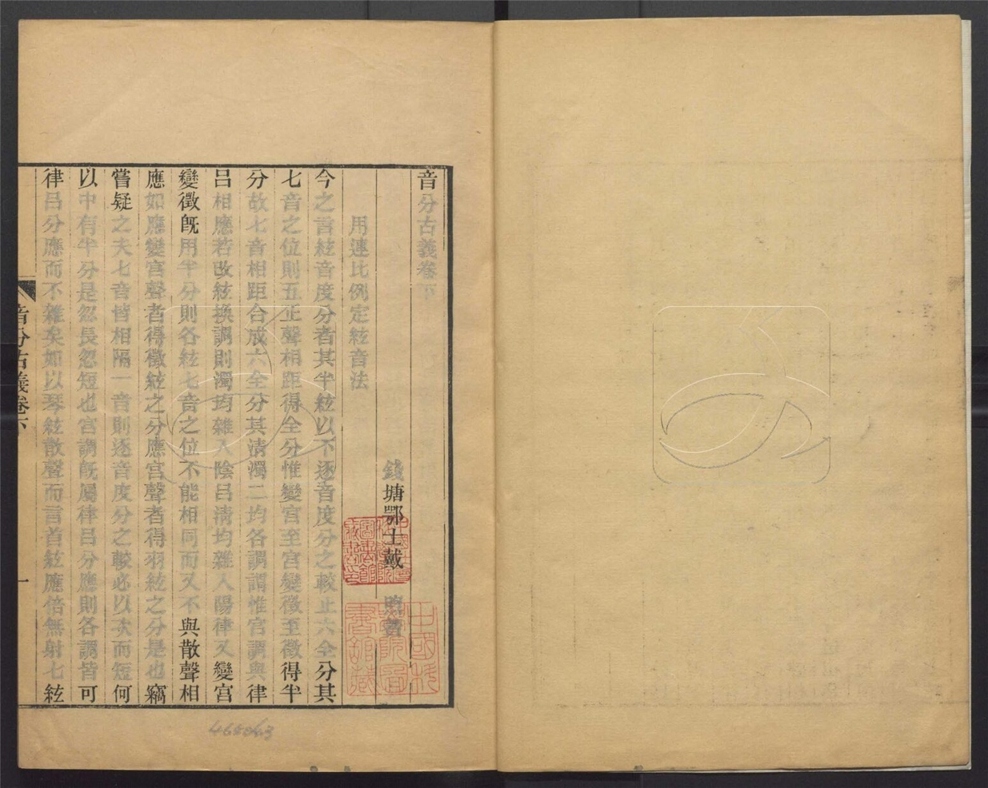 音分古義卷下
錢塘鄂士戴煦著
用連比例定絃音法
今之言絃音度分者其半絃以下逐音度分之較止六全分其
七音之位則五正聲相距得全分惟變宮至宮變徵至徵得半
分故七音相距合成六全分其淸濁二均各調謂惟宮調與律
呂相應若改絃換調則濁均雜入陰呂淸均雜入陽律又變宮
變徵旣用半分則各絃七音之位不能相同而又不與散聲相
應如應變宮聲者得徵絃之分應宮聲者得羽絃之分是也竊
嘗疑之夫七音皆相隔一音則逐音度分之較必以次而短何
以中有半分是忽長忽短也宮調旣屬律呂分應則各調皆可
律呂分應而不雜矣如以琴絃散聲而言首絃應倍無射七絃
音分古義卷下
一
460063